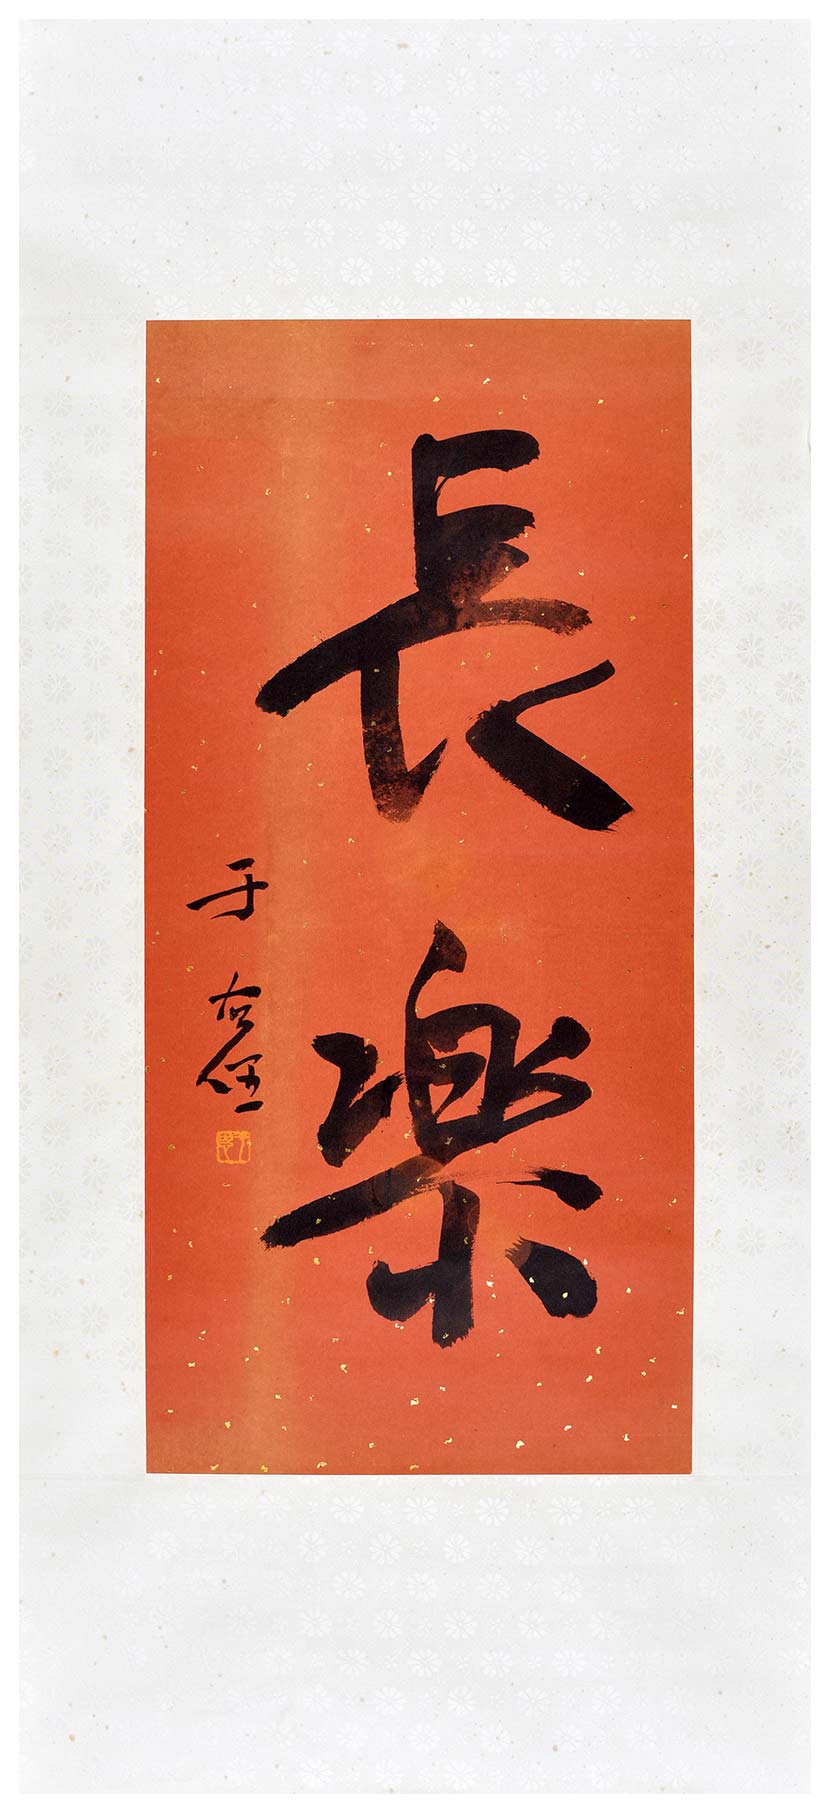 長樂
于右任